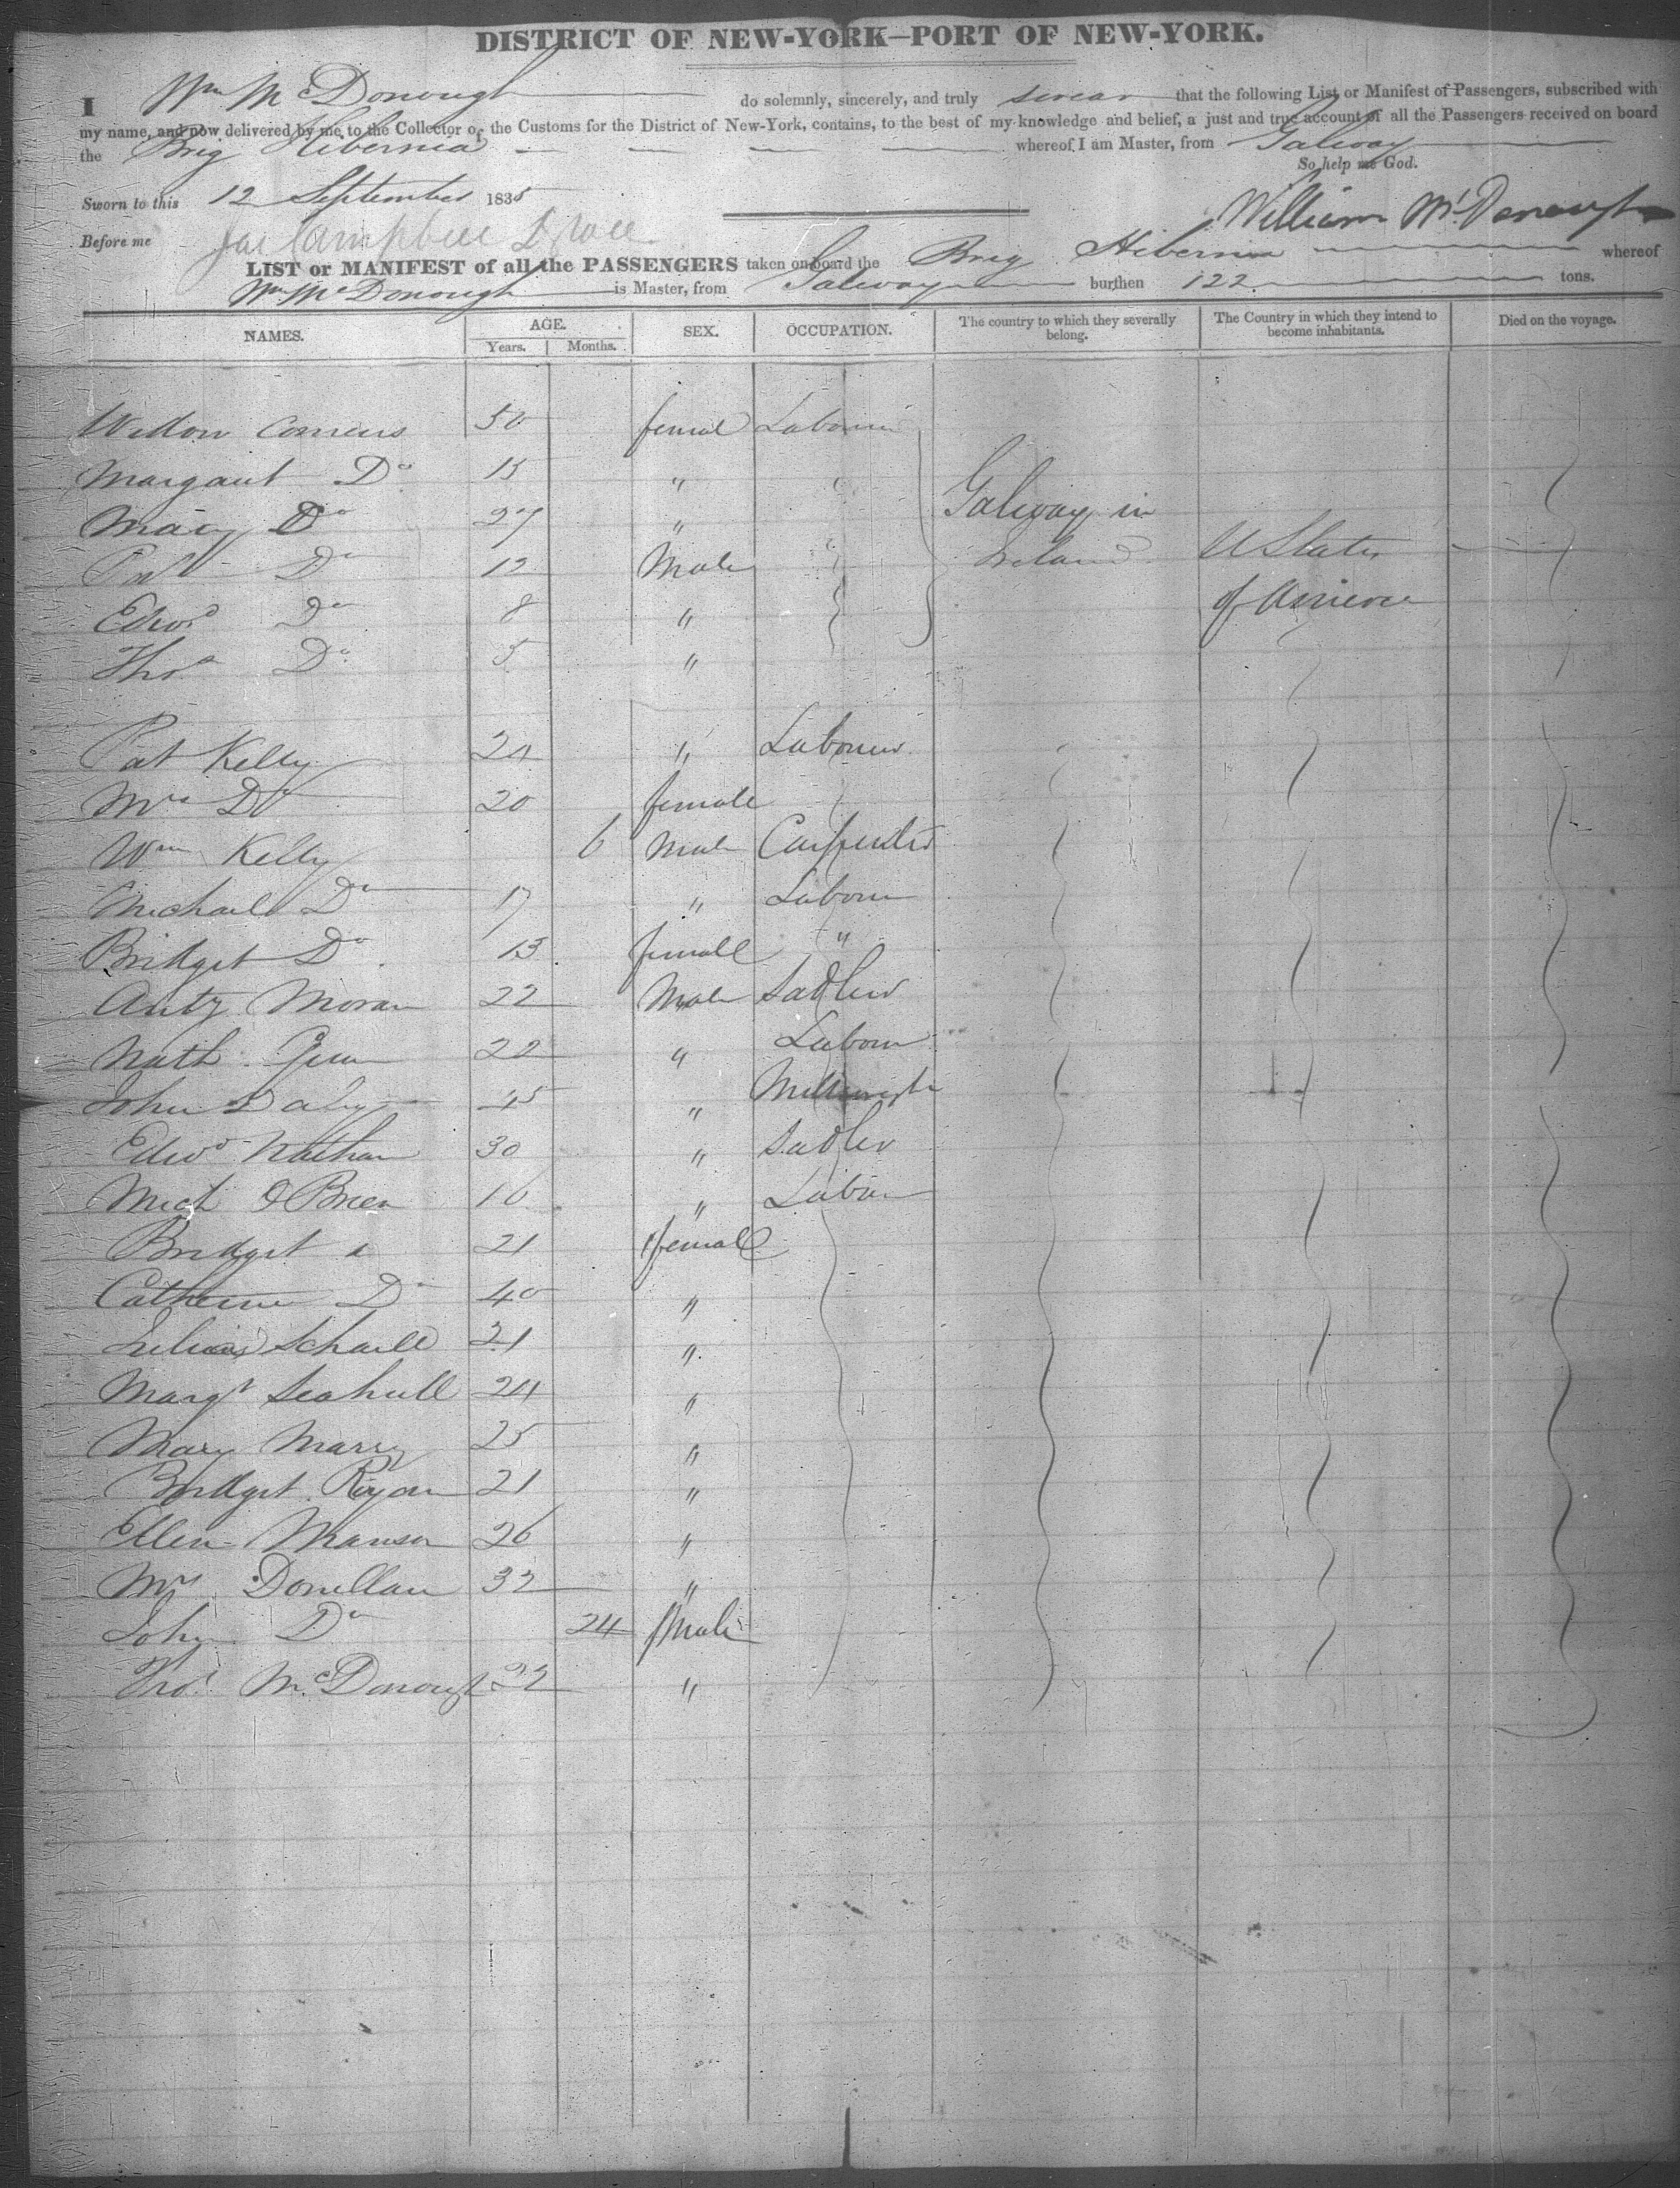 DISTRICT OF NEW-YORK—PORT OF NEW-YORK.
I Wm McDonough do solemnly, sincerely, and truly swear that the following List or Manifest of Passengers, subscribed with
my name, and now delivered by me to the Collector of the Customs for the District of New-York, contains, to the best of my knowledge and belief, a just and true account of all the Passengers received on board
the Brig Hibernia whereof I am Master, from Galway
So help me God.
Sworn to this 12 September 1835
William McDonough
Before me
LIST or MANIFEST of all the PASSENGERS taken on board the Brig Hibernia whereof
Wm McDonough is Master, from Galway burthen 122 tons.
NAMES. AGE. Years. Months. SEX. OCCUPATION. The country to which they severally belong. The Country in which they intend to become inhabitants. Died on the voyage.
50 femal Labourer
Margaret Do 15 "
Mary Do 27 " Galway in
Pat Do 12 Male Ireland U States
Edwd Do 8 " of America
Thos Do 5 "
Pat Kelly 24 " Labourer
Mrs Do 20 female
Wm Kelly 6 Male Carpenter
Michael Do 17 " Labour
Bridget Do 13 female "
Anty Moran 22 Male Sadler
Nath 22 " Labour
John Daly 45 " Millwright
Edwd 30 " Sadler
Mich O Brien 16 " Labour
Bridget 21 female
Catherine Do 40 "
21 "
Margt 24 "
Mary 25 "
Bridget Ryan 21 "
Ellen 26 "
Mrs Donellan 32 "
John Do 24 Male
Thos McDonough 22 "